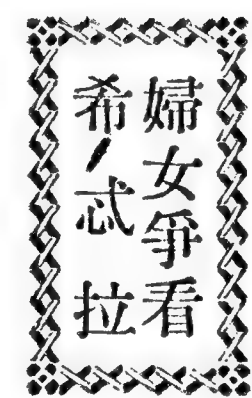 婦女爭看
希忒拉